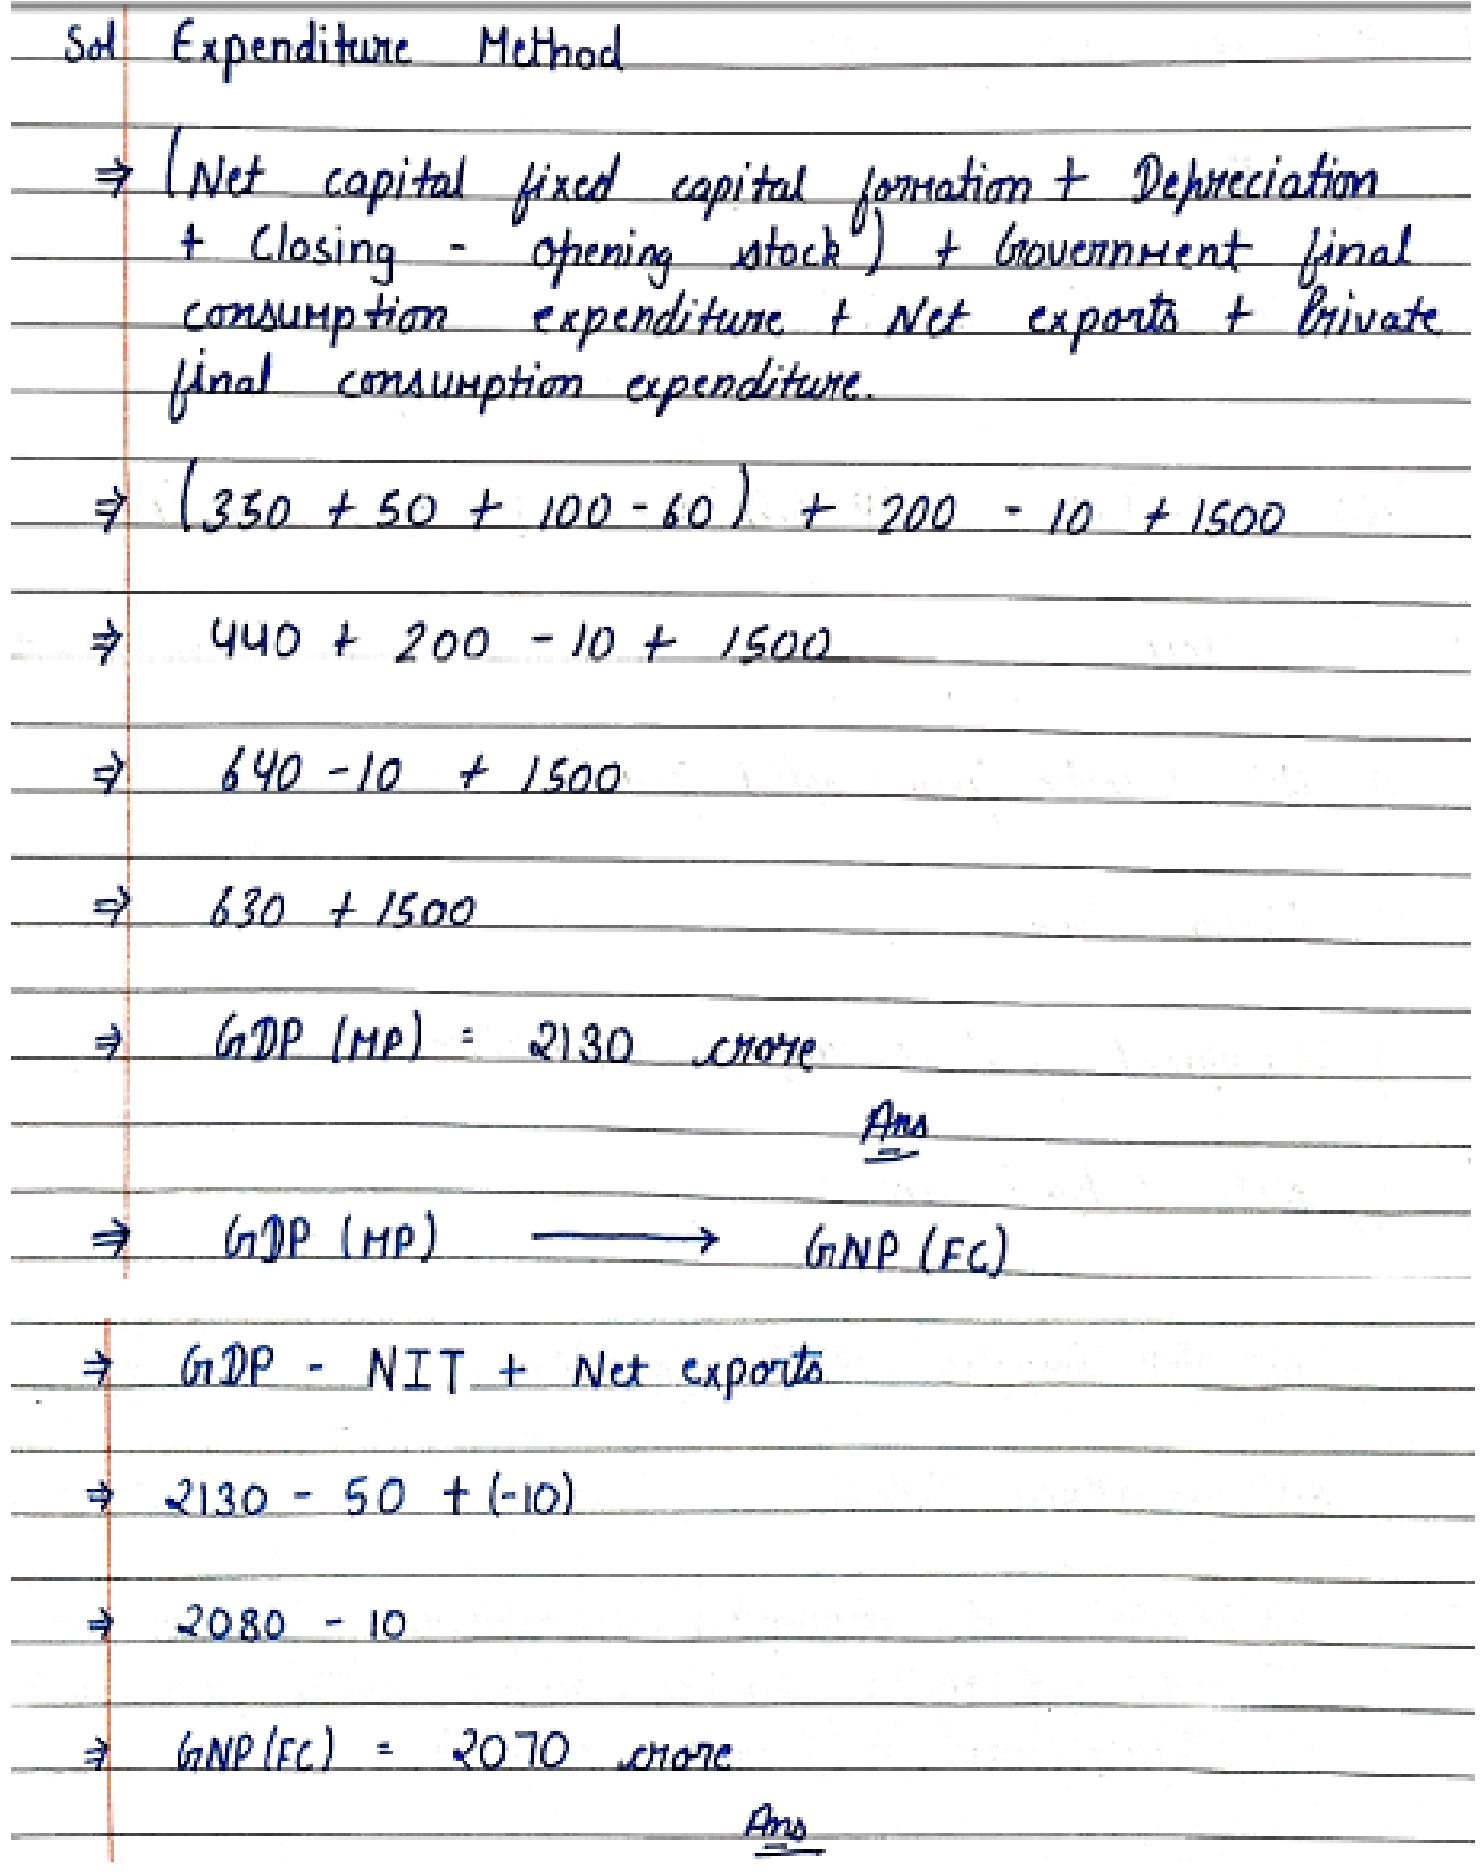 Sol Expenditure Method
⇒ (Net capital fixed capital formation + Depreciation
+ Closing - opening stock) + Government final
consumption expenditure + Net exports + Private
final consumption expenditure.
⇒ (350 + 50 + 100 - 60) + 200 - 10 + 1500
⇒ 440 + 200 - 10 + 1500
⇒ 640 - 10 + 1500
⇒ 630 + 1500
⇒ GDP (MP) = 2130 crore
Ans
⇒ GDP (MP) ⟶ GNP (FC)
⇒ GDP - NIT + Net exports
⇒ 2130 - 50 + (-10)
⇒ 2080 - 10
⇒ GNP (FC) = 2070 crore
Ans